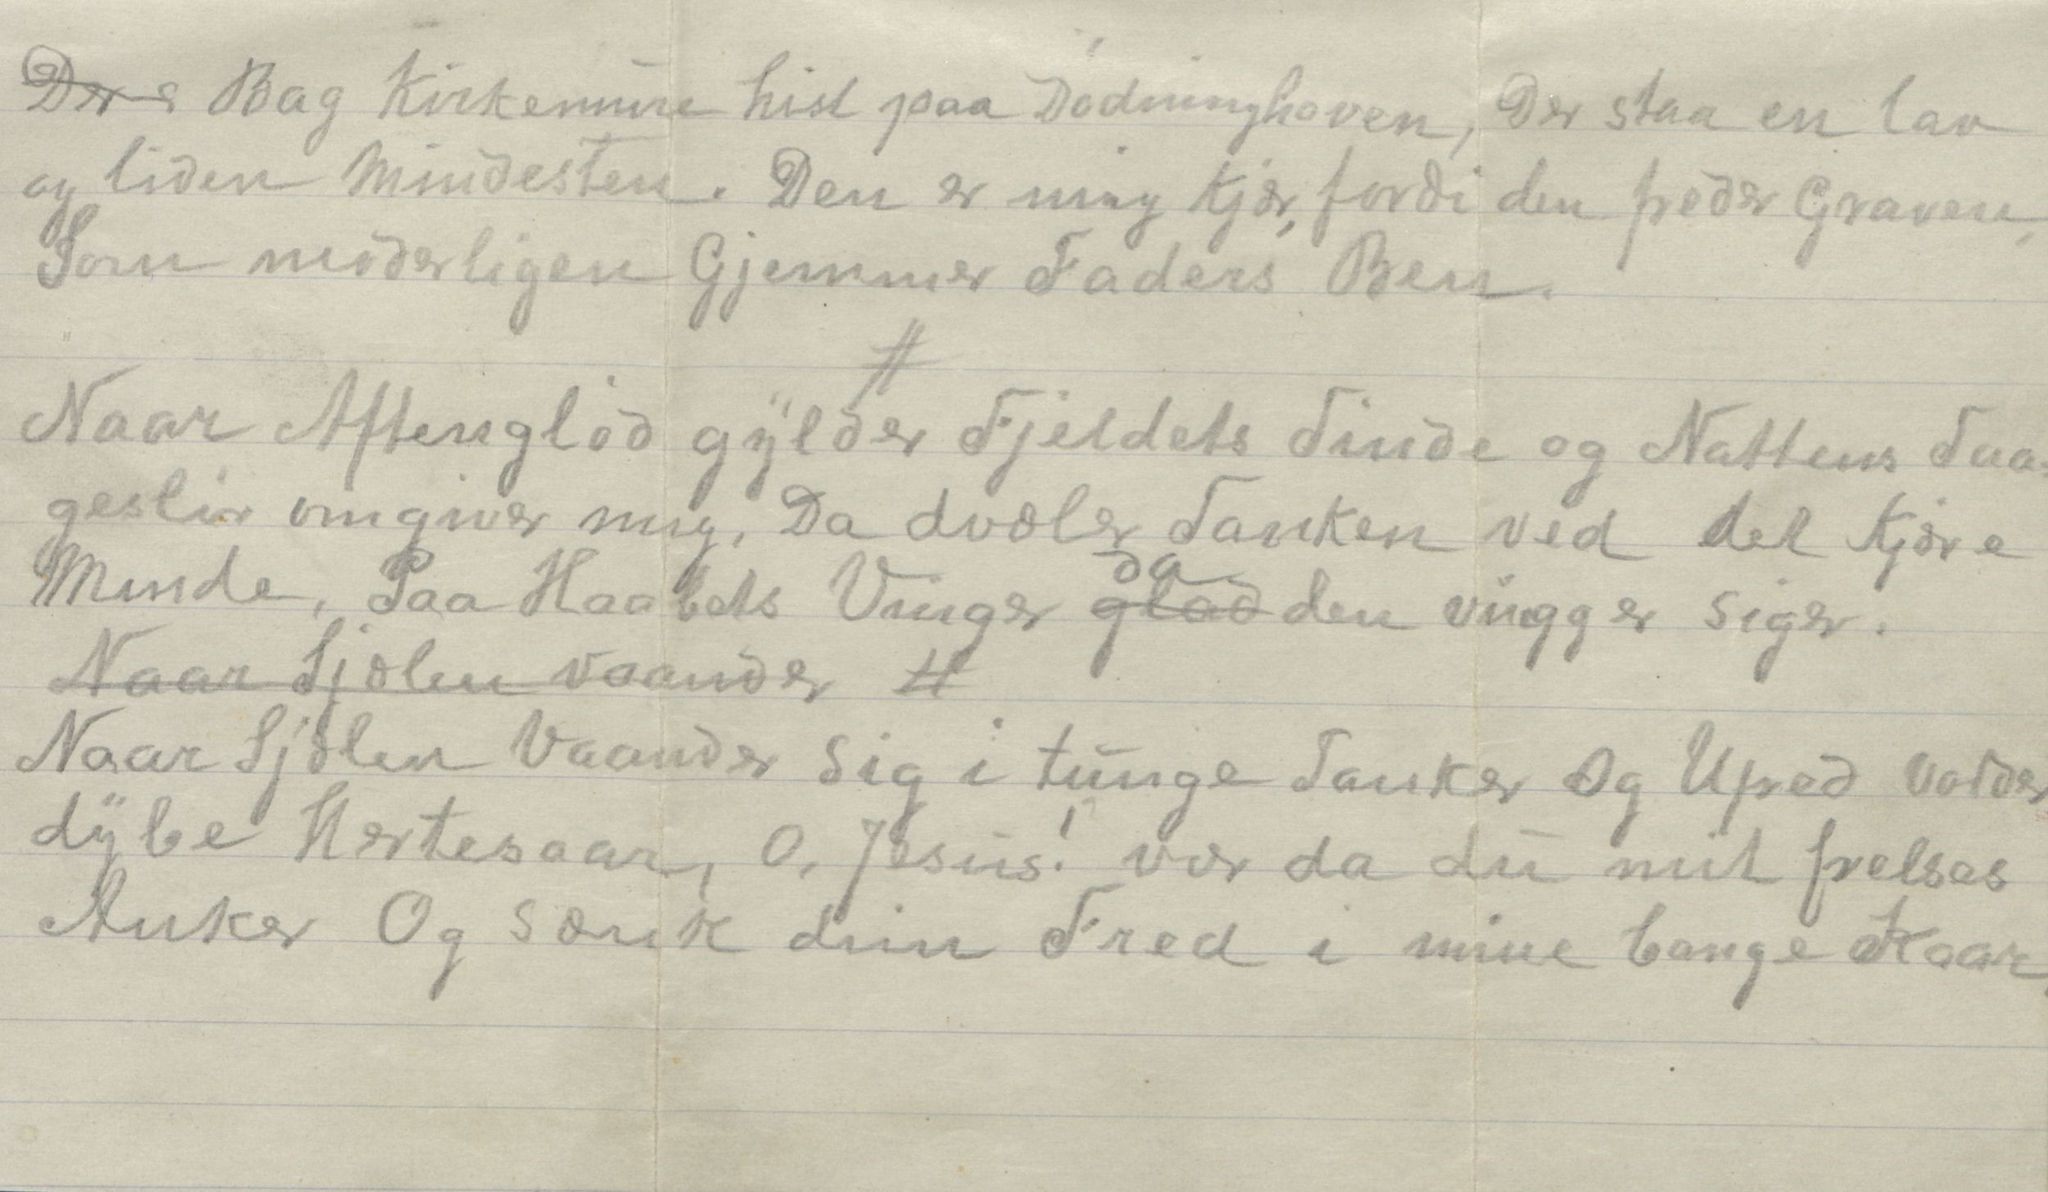 Der Bag Kirkemure hist paa Dødninghaven, Der staa en lav
og liden Mindesten. Den er mig kjær, fordi den freder Graven,
Som moderligen Gjemmer Faders Ben.
#
Naar Aftenglød gÿlder Fjeldets Tinde og Nattens Taa-
geslør omgiver mig, Da dvæler Tanken ved det kjære
Minde, Paa Haabets Vinger glad da den vugger siger.
Naar Sjælen vaander #
Naar Sjælen Vaander sig i tunge Tanker Og Ufred volder
dÿbe Hertesaar, O, Jesus! vær da du mit frelses
Anker Og sænk din Fred i mine bange Kaar,